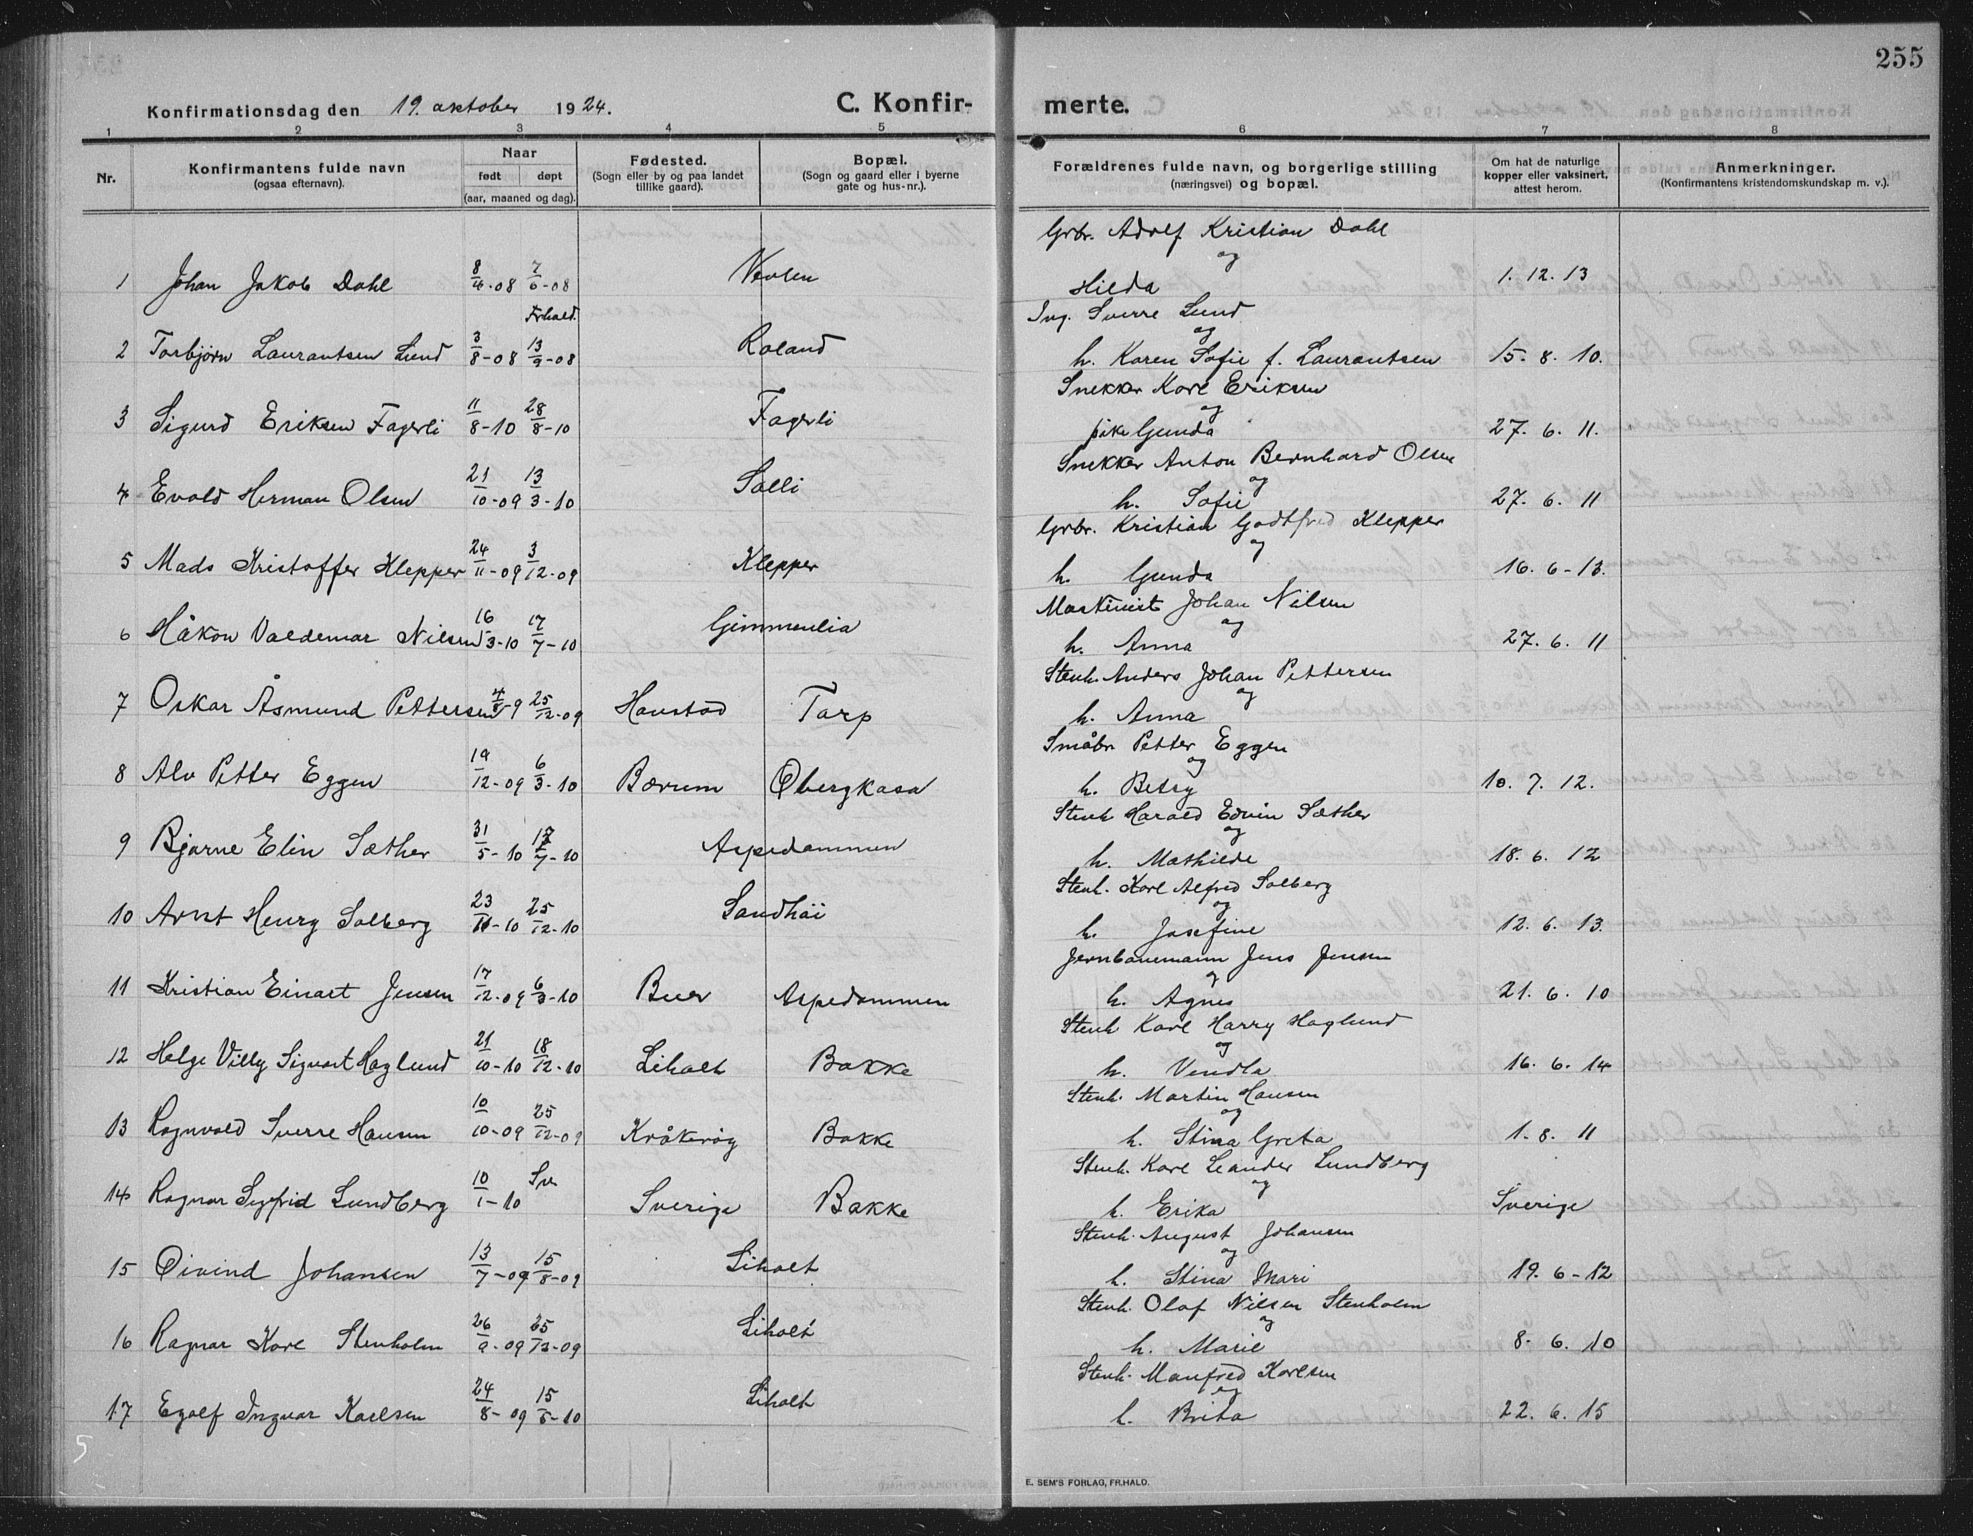 255
Konfirmationsdag den 19. oktober 1924.
C. Konfirmerte.
1 2 3 4 5 6 7 8
Nr.
Konfirmantens fulde navn
(ogsaa efternavn).
Naar
født døpt
(aar, maaned og dag).
Fødested.
(Sogn eller by og paa landet
tillike gaard).
Bopæl.
(Sogn og gaard eller i byerne
gate og hus-nr.).
Forældrenes fulde navn, og borgerlige stilling
(næringsvei) og bopæl.
Om hat de naturlige
kopper eller vaksinert,
attest herom.
Anmerkninger.
(Konfirmantens kristendomskundskap m. v.).
Grbr. Adolf Kristian Dahl
og
1 Johan Jakob Dahl 8/4-08 7/6-08 Hilda 1. 12. 13
Frhald.
Ing. Sverre Lund
og
2 Torbjørn Laurantsen Lund 3/8-08 13/9-08 Roland h. Karen Sofie f. Laurantsen 15. 8. 10.
Snekker Karl Eriksen
og
3 Sigurd Eriksen Fagerli 11/8-10 28/8-10 Fagerli pike Gunda 27. 6. 11.
Snekker Anton Bernhard Olsen
og
4 Evald Herman Olsen 21/10-09 13/3-10 Solli h. Sofie 27. 6. 11
Grbr. Kristian Godtfred Klepper
og
5 Mads Kristoffer Klepper 24/11-09 3/12-09 Klepper h. Gunda 16. 6-13.
Maskinist Johan Nilsen
og
6 Håkon Valdemar Nilsen 16/3-10 17/7-10 Gimmenlia h. Anna 27. 6. 11
Stenh. Anders Johan Pettersen
og
7 Oskar Åsmund Pettersen 25/12-09 Torp h. Anna
Småbr. Petter Eggen
og
8 Alv Petter Eggen 19/12-09 6/3-10 Bærum Øbergkasa h. Betsy 10. 7. 12.
Stenh. Harald Edvin Sæther
og
9 Bjarne Elin Sæther 31/5-10 17/7-10 Aspedammen h. Mathilde 18. 6. 12
Stenh. Karl Alfred Solberg
og
10 Arnt Henry Solberg 23/11-10 25/12-10 Sandhöi h. Josefine 12. 6. 13.
Jernbanemann Jens Jensen
og
11 Kristian Einart Jensen 17/12-09 6/3-10 Buer Aspedammen h. Agnes 21. 6. 10
Stenh. Karl Harry Haglund
og
12 Helge Villy Sigvart Haglund 21/10-10 18/12-10 Liholt Bakke h. Vendla 16. 6. 14
Stenh. Martin Hansen
og
13 Ragnvald Sverre Hansen 10/10-09 25/12-09 Kråkerøy Bakke h. Stina Greta 1. 8. 11
Stenh. Karl Leander Lundberg
og
14 Ragnar Sigfrid Lundberg 10/1-10 Sv. Sverige Bakke h. Erika Sverige
Stenh. August Johansen
og
15 Øivind Johansen 13/7-09 15/8-09 Liholt h. Stina Mari 19. 6-12
Stenh. Olaf Nilsen Stenholm
og
16 Ragnar Karl Stenholm 26/9-09 25/12-09 Liholt h. Marie 8. 6. 10
Stenh. Manfred Karlsen
og
17 Egolf Ingvar Karlsen 24/8-09 15/5-10 Liholt h. Brita 22. 6. 15
5
E. SEM'S FORLAG, FR.HALD.